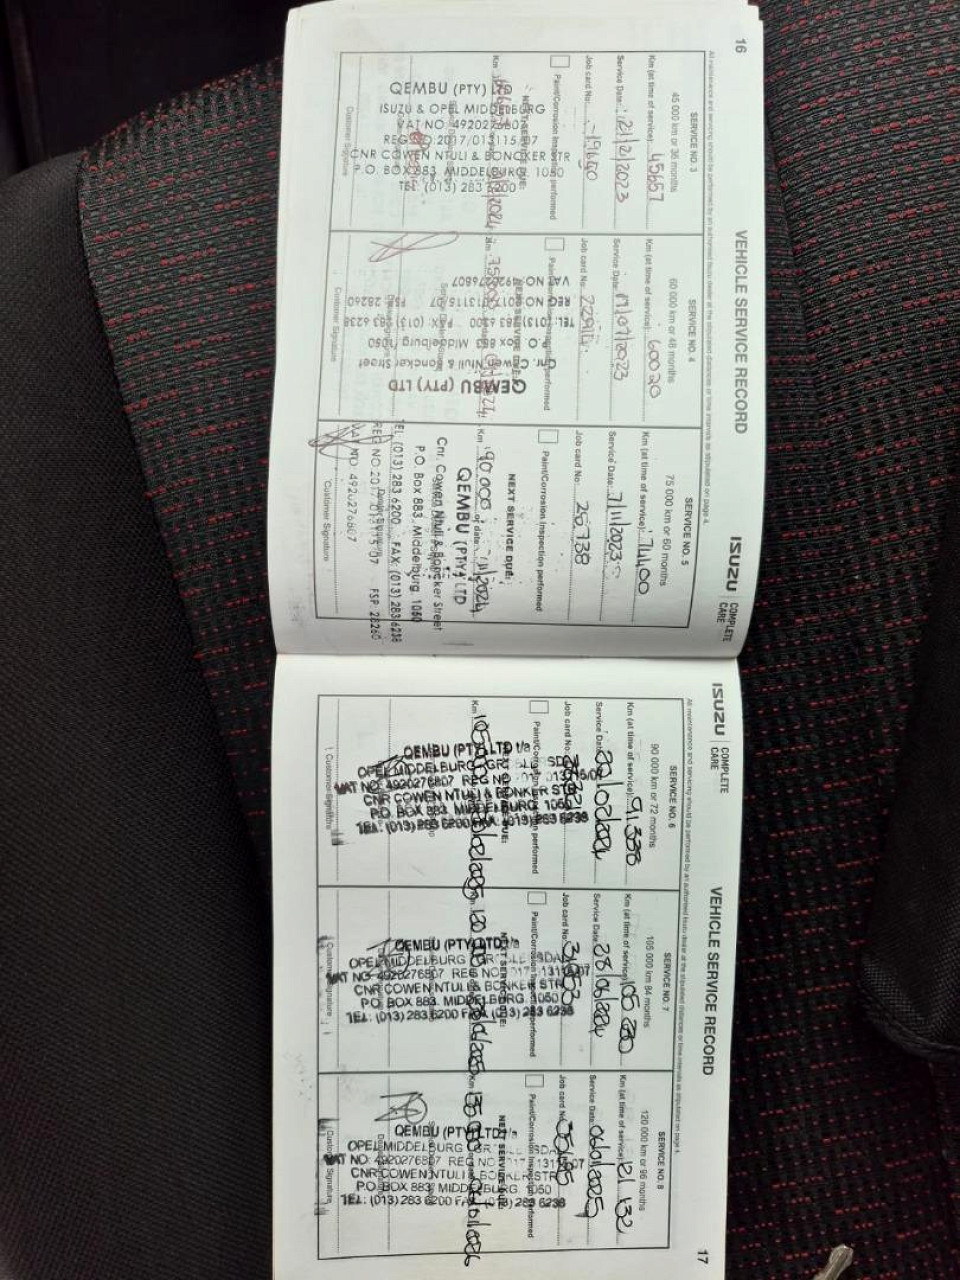 16
VEHICLE SERVICE RECORD
ISUZU COMPLETE CARE
All maintenance and servicing should be performed by an authorised Isuzu dealer at the stipulated distances or time intervals as stipulated on page 4.
SERVICE NO. 3
45 000 km or 36 months
Km (at time of service): 45657
Service Date: 21/2/2023
Job card No: 19690
Paint/Corrosion Inspection performed
NEXT SERVICE DUE:
Km
QEMBU (PTY) LTD
ISUZU & OPEL MIDDELBURG
VAT NO: 4920276807
REG NO:2017/013115/07
CNR COWEN NTULI & BONCKER STR
P.O. BOX 883, MIDDELBURG, 1050
TEL: (013) 283 6200
Customer Signature
SERVICE NO. 4
60 000 km or 48 months
Km (at time of service): 60020
Service Date: 17/07/2023
Job card No:
Km 75000
QEMBU (PTY) LTD
Cnr. Cowen Ntuli & Boncker Street
P.O. Box 883 Middelburg 1050
TEL: (013) 283 6200 FAX: (013) 283 6238
REG NO: 2017/013115/07 FSP 28260
VAT NO: 4920276807
Customer Signature
SERVICE NO. 5
75 000 km or 60 months
Km (at time of service): 74400
Service Date: 7/11/2023
Job card No: 25738
Paint/Corrosion Inspection performed
NEXT SERVICE DUE:
Km 90 000 or date: 7/11/2024
QEMBU (PTY) LTD
Cnr. Cowen Ntuli & Boncker Street
P.O. Box 883, Middelburg, 1050
TEL: (013) 283 6200 FAX: (013) 283 6238
REG NO: 2017/013115/07 FSP 28260
VAT NO: 4920276807
Customer Signature
ISUZU COMPLETE CARE
VEHICLE SERVICE RECORD
17
All maintenance and servicing should be performed by an authorised Isuzu dealer at the stipulated distances or time intervals as stipulated on page 4.
SERVICE NO. 6
90 000 km or 72 months
Km (at time of service): 91338
Service Date:
Job card No:
Paint/Corrosion Inspection performed
Km
QEMBU (PTY) LTD t/a
OPEL MIDDELBURG
VAT NO: 4920276807 REG NO
CNR COWEN NTULI & BONKER STR
P.O. BOX 883, MIDDELBURG, 1050
TEL: (013) 283 6200 FAX: (013) 283 6238
Customer Signature
SERVICE NO. 7
105 000 km 84 months
Km (at time of service)
Service Date: 28/06/2024
Job card No:
Paint/Corrosion Inspection performed
QEMBU (PTY) LTD t/a
OPEL MIDDELBURG
VAT NO: 4920276807 REG NO
CNR COWEN NTULI & BONKER STR
P.O. BOX 883, MIDDELBURG, 1050
TEL: (013) 283 6200 FAX (013) 283 6238
Customer Signature
SERVICE NO. 8
120 000 km or 96 months
Km (at time of service): 121 132
Service Date: 06/01/2025
Job card No:
Paint/Corrosion Inspection performed
NEXT SERVICE DUE:
Km 135 000 06/01/2026
QEMBU (PTY) LTD t/a
OPEL MIDDELBURG
VAT NO: 4920276807 REG NO
CNR COWEN NTULI & BONKER STR
P.O. BOX 883, MIDDELBURG, 1050
TEL: (013) 283 6200 FAX (013) 283 6238
Customer Signature